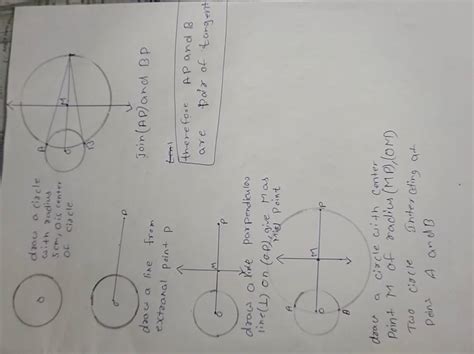 O
draw a circle
with radius
5cm, O is center
of circle
O
P
draw a line from
extranal point P
O
M
P
draw a line perpendiculas
line(⊥) on (OP), give M as
mid point
A
O
M
P
B
draw a circle with center
point M of radius (MP),(OM)
Two circle intersecting at
point A and B
P
M
A
O
B
join (AP) and BP
therefore AP and B
are pair of tangent